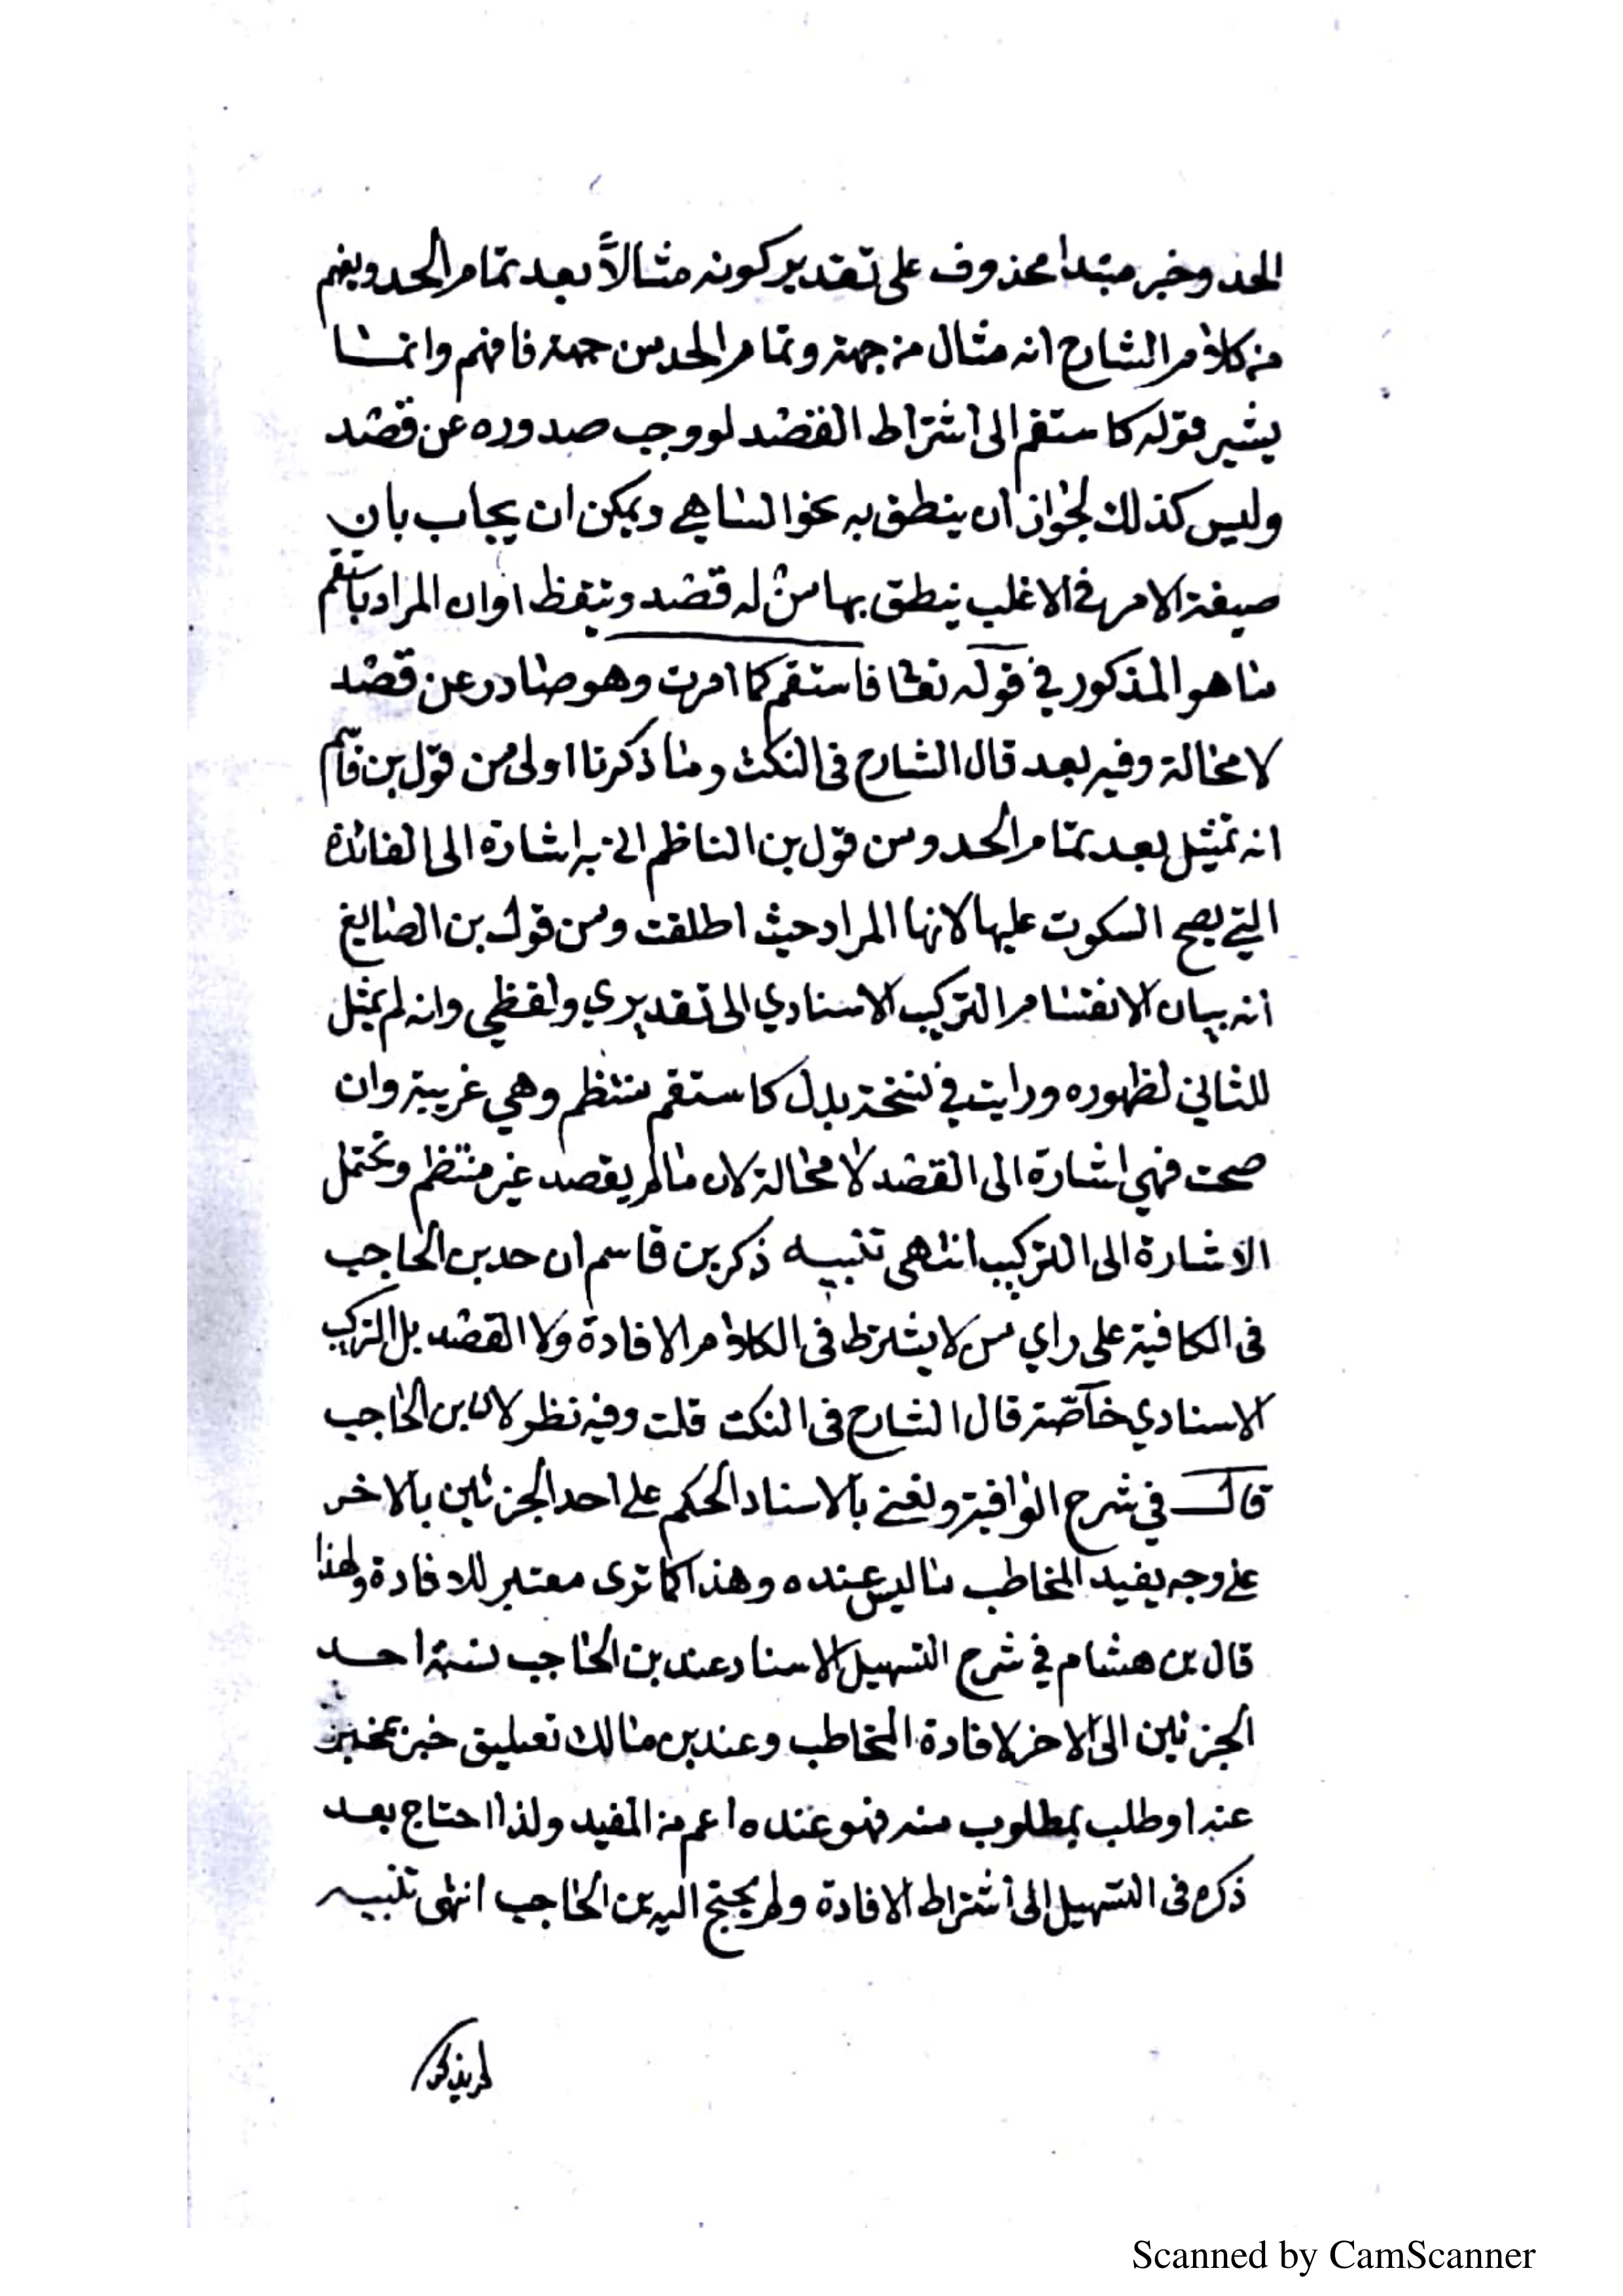 الحد وخبر مبتدا محذوف على تقدير كونه مثالاً بعد تمام الحد ويفهم
من كلام الشارح انه مثال من جهة وتمام الحد من جهة فافهم وانما
يشير قوله كاستقم الى اشتراط القصد لو وجب صدوره عن قصد
وليس كذلك لجواز ان ينطق به نحو الساهي ويمكن ان يجاب بان
صيغة الامر في الاغلب ينطق بها من له قصد وتيقظ او ان المراد باستقم
ما هو المذكور في قوله تعا فاستقم كما امرت وهو صادر عن قصد
لا محالة وفيه بعد قال الشارح فى النكت وما ذكرنا اولى من قول بن قاسم
انه تمثيل بعد تمام الحد ومن قول بن الناظم انه به اشارة الى الفائدة
التي يصح السكوت عليها لانها المراد حيث اطلقت ومن قول بن الصايغ
انه بيان لانقسام التركيب الاسنادي الى تقديري ولفظي وانه لم يمثل
للثاني لظهوره ورايت في نسخة بدل كاستقم منتظم وهي غريبة وان
صحت فهي اشارة الى القصد لا محالة لان ما لم يقصد غير منتظم وتحتمل
الاشارة الى التركيب انتهى تنبيه ذكر بن قاسم ان حد بن الحاجب
فى الكافية على راي من لا يشترط فى الكلام الافادة ولا القصد بل التركيب
الاسنادي خاصة قال الشارح فى النكت قلت وفيه نظر لان بن الحاجب
قال في شرح الوافية ونعني بالاسناد الحكم على احد الجزئين بالاخر
على وجه يفيد المخاطب ما ليس عنده وهذا كما ترى معتبر للافادة ولهذا
قال بن هشام في شرح التسهيل الاسناد عند بن الحاجب نسبة احد
الجزئين الى الاخر لافادة المخاطب وعند بن مالك تعليق خبر بمخبر
عنه او طلب بمطلوب منه فهو عنده اعم من المفيد ولذا احتاج بعد
ذكره فى التسهيل الى اشتراط الافادة ولم يحتج اليه بن الحاجب انتهى تنبيه
لم يذكر
Scanned by CamScanner